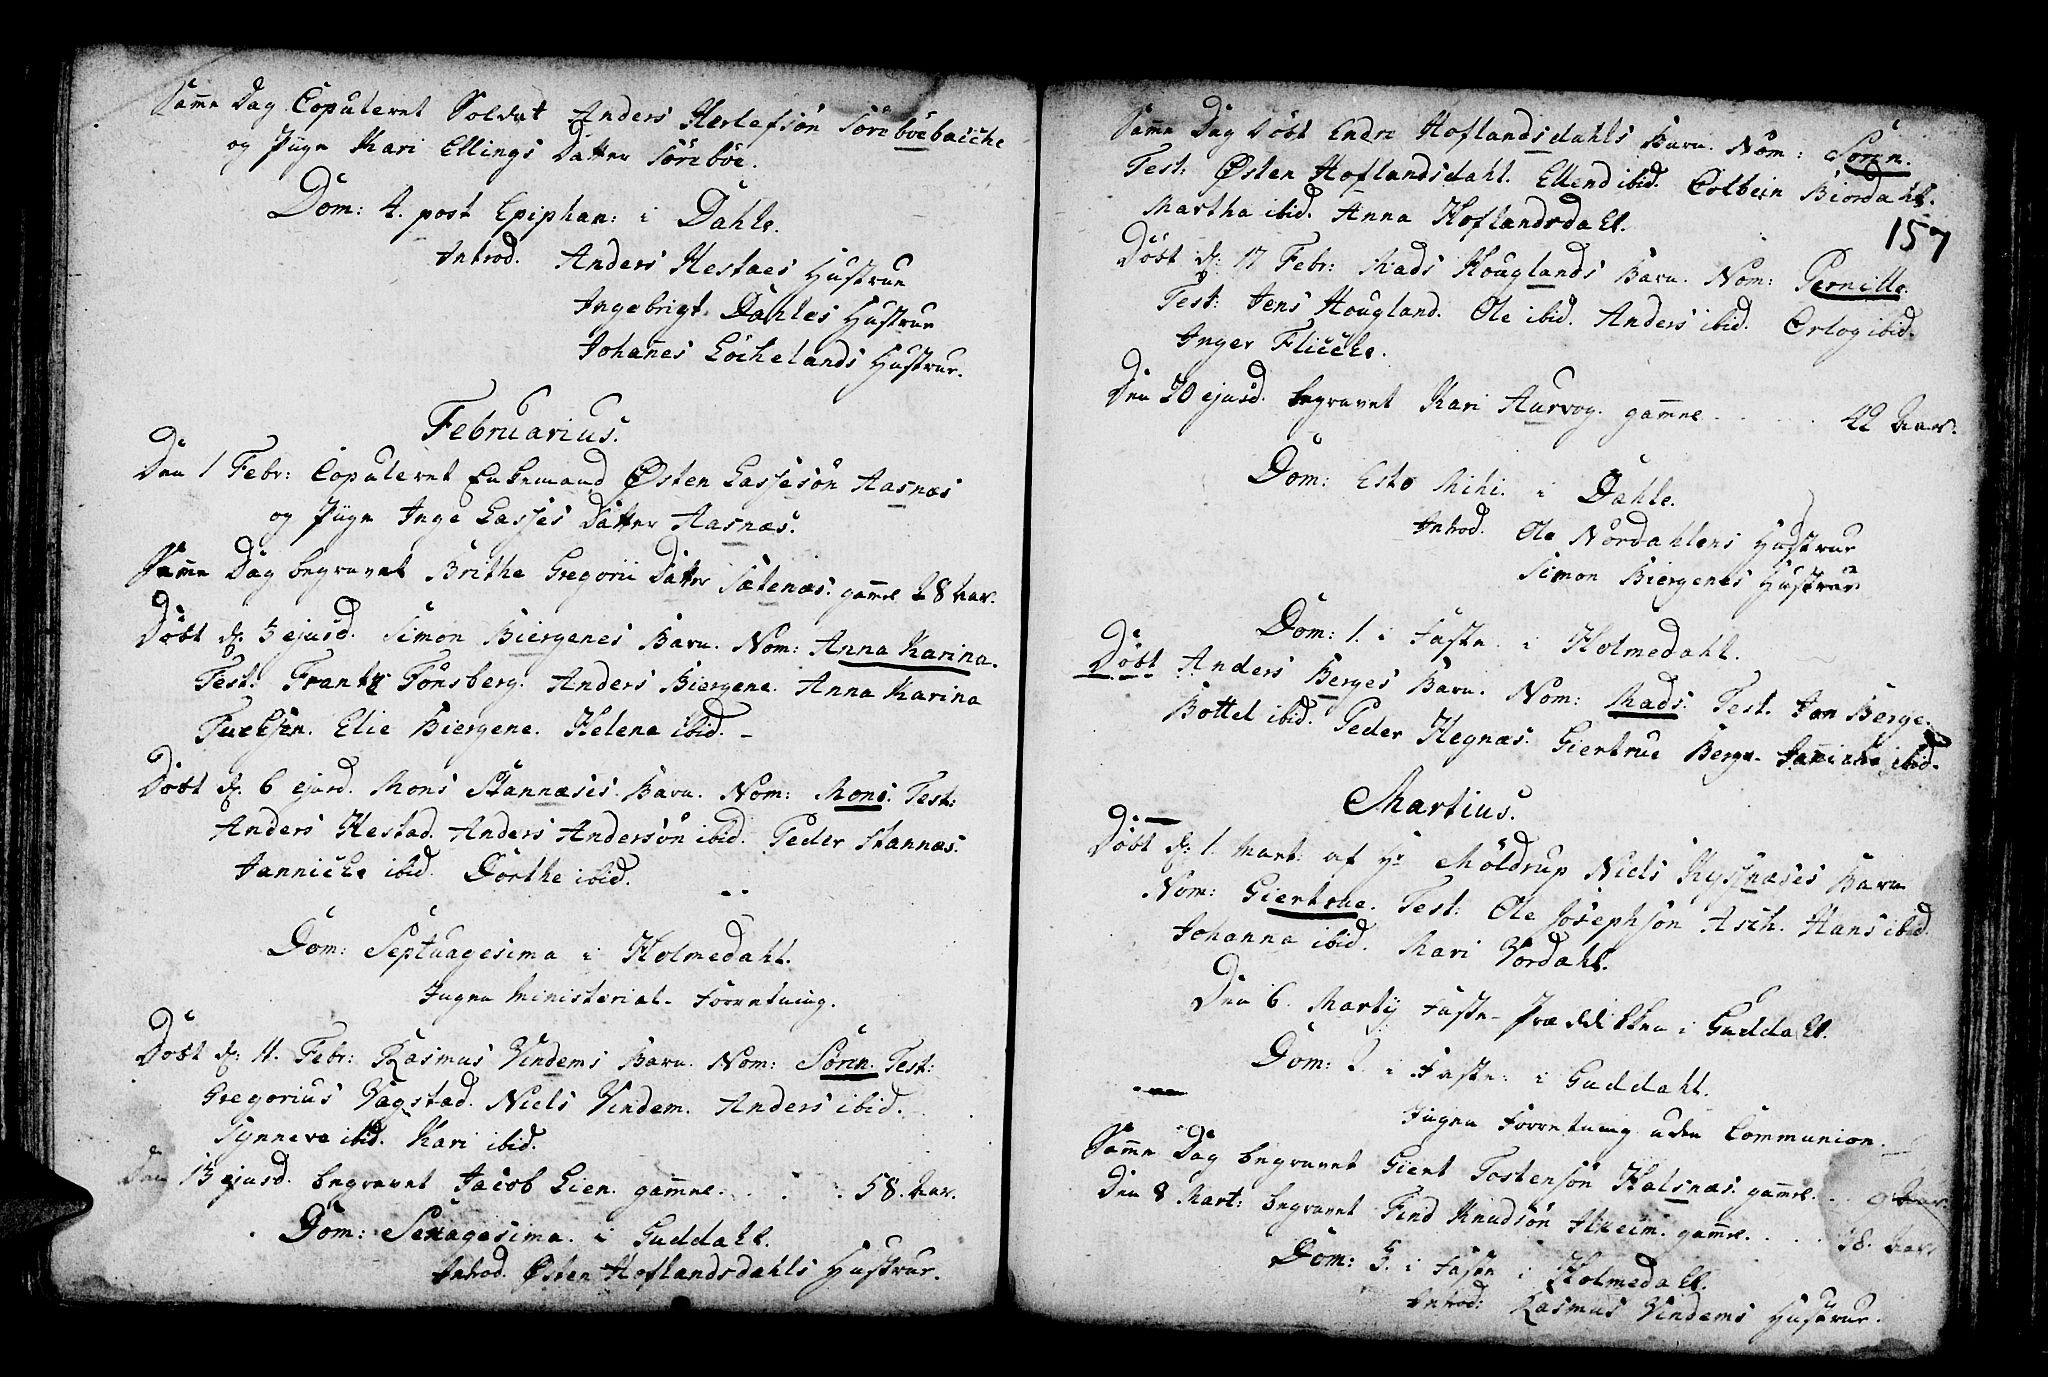 Samme Dag Copuleret Soldat Anders Herlefsön Söreböebacche
og Pige Kari Ellings Datter Söreböe.
Dom: 4. post Epiphan: i Dahle.
Introd. Anders Hestaes Hustrue
Ingebrigt Dahles Hustrue
Johanes Löchelands Hustrue.
Februarius.
Den 1 Febr: Copuleret Enkemand Østen Lassesön Aasnæs
og Pige Inge Lasses Datter Aasnæs.
Samme Dag begravet Brithe Gregorii Datter Sætenæs. gamel 28 Aar.
Döbt d: 3 ejusd. Simon Biergenes Barn. Nom: Anna Karina.
Test: Frantz Tönsberg. Anders Biergene. Anna Karina
Elie Biergene. Helena ibid.
Döbt d: 6 ejusd. Mons Stannæses Barn. Nom: Mons. Test:
Anders Hestad. Anders Andersön ibid. Peder Stannæs.
Janniche ibid. Dorthe ibid.
Dom: Septuagesima i Holmedahl.
Ingen Ministerial-Forretning.
Döbt d: 11. Febr: Rasmus Vindems Barn. Nom: Sören. Test:
Gregorius Vagstad. Niels Vindem. Anders ibid.
Synneve ibid. Kari ibid.
Den 13 ejusd. begravet Jacob Lien. gamel. . . . 58. Aar.
Dom: Sexagesima. i Guddahl.
Introd. Østen Hoflandsdahls Hustrue.
Samme Dag Döbt Endre Hoflandsdahls Barn. Nom: Sören.
Test: Østen Hoflandsdahl. Ellend ibid. Colbein Biordahl.
Martha ibid. Anna Hoflandsdahl.
157
Döbt d: 17 Febr: Mads Houglands Barn. Nom: Pernille.
Test: Jens Hougland. Ole ibid. Anders ibid. Ortog ibid.
Inger Flicche.
Den 20 ejusd. begravet Kari Aurvog. gamel . . . . 42 Aar.
Dom: Esto Mihi. i Dahle.
Introd. Ole Nordahlens Hustrue
Simon Biergenes Hustrue
Dom: 1. i Faste. i Holmedahl.
Döbt Anders Berges Barn. Nom: Mads. Test. Jan Berge.
Bottel ibid. Peder Hegnæs. Giertrue Berge. Janiche ibid.
Martius.
Döbt d: 1. Mart: af Hr Möldrup Niels Hysnæses Barn
Nom: Giertrue. Test: Ole Josephsön Asch. Hans ibid.
Johanna ibid. Mari Vordahl.
Den 6. Martij Faste-Prædikken i Guddahl.
Dom: 2. i Faste. i Guddahl.
Ingen Forretning uden Communion.
Samme Dag begravet Giert Tostensön Halsnæs. gamel. . . 9 Aar.
Den 8 Mart: begravet Find Knudsön gamel. . . . 78. Aar.
Dom: 3. i Fasten i Holmedahl.
Introd: Rasmus Vindems Hustrue.